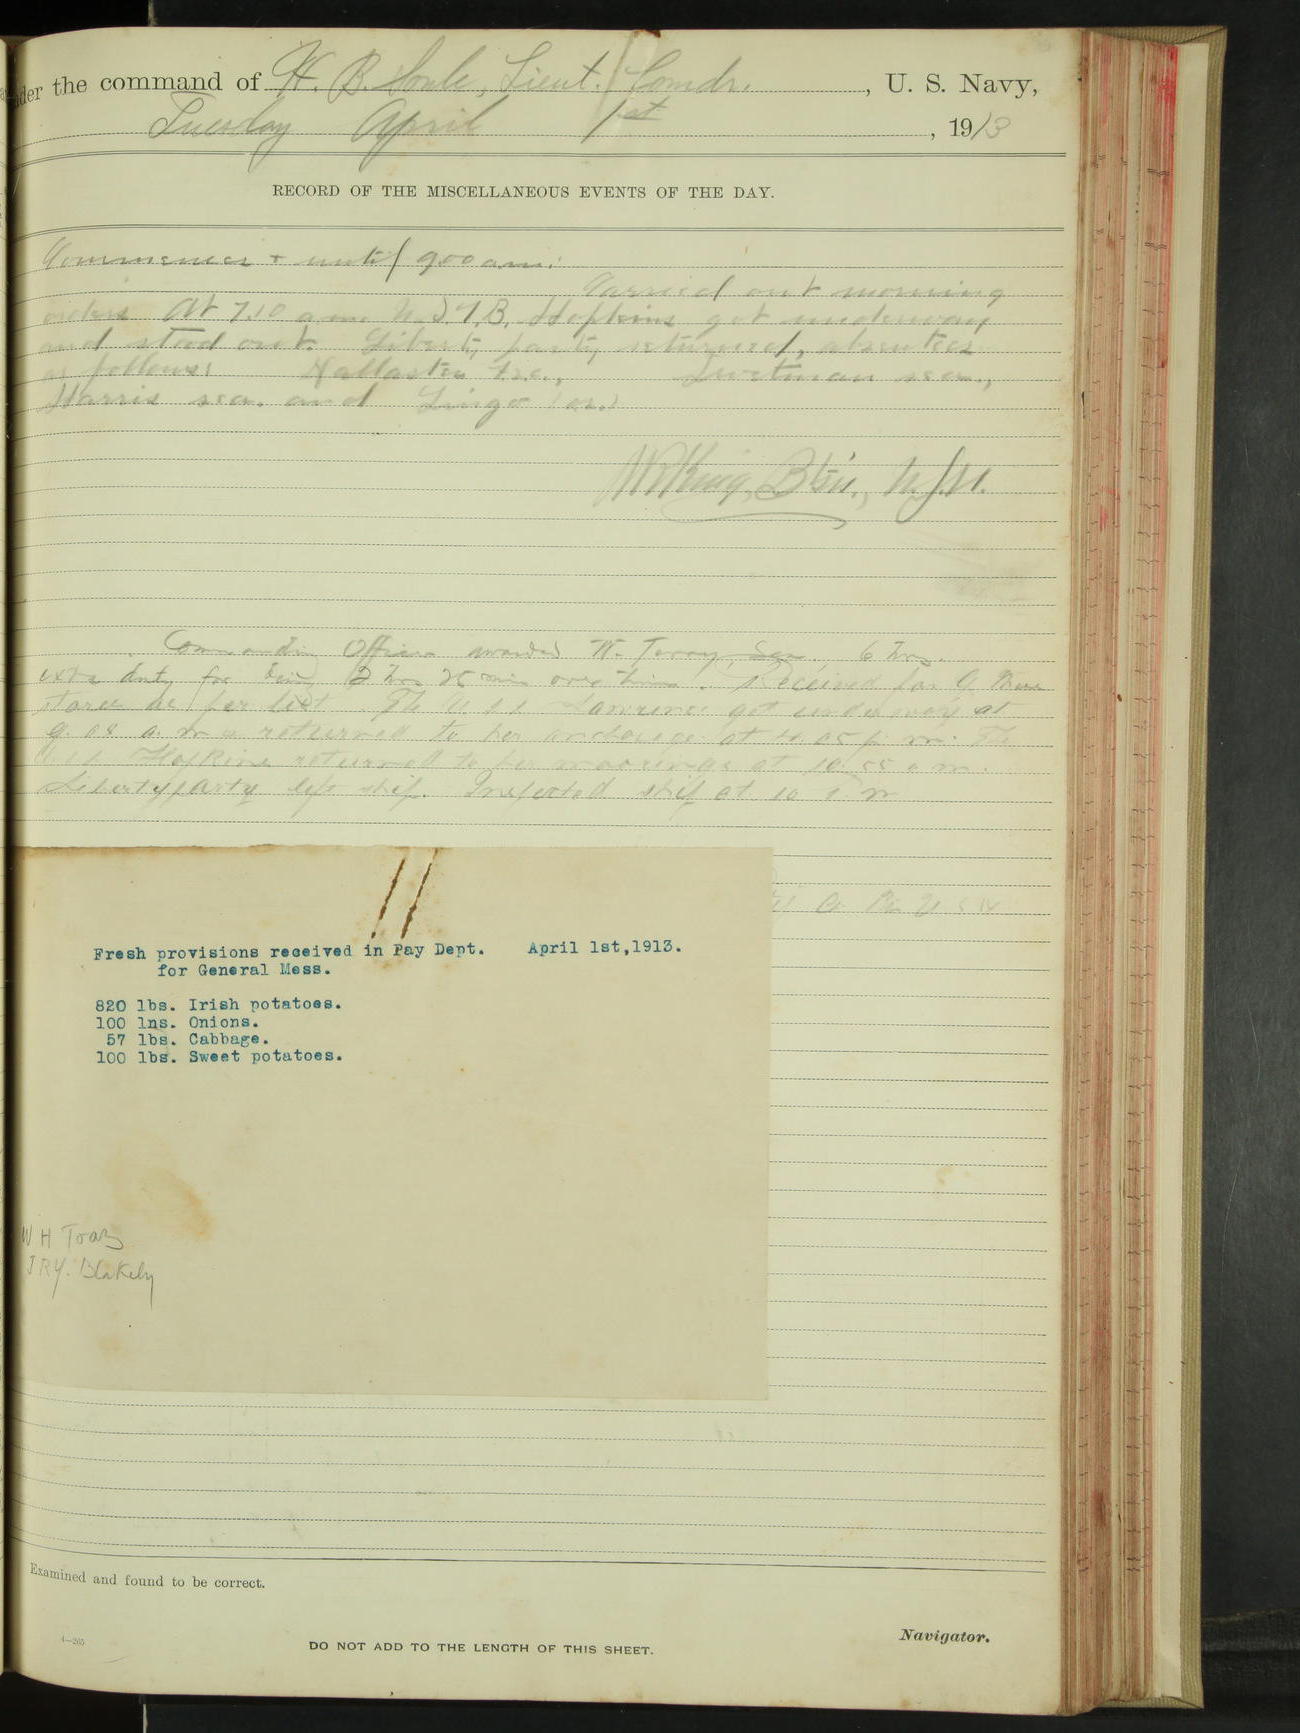 under the command of H. B. Soule, Lieut. Comdr., U. S. Navy,
Tuesday April 1st, 1913
RECORD OF THE MISCELLANEOUS EVENTS OF THE DAY.
Commences & until 9.00 a.m.:
Carried out morning
orders At 7.10 a.m. U.S.T.B. Hopkins got underway
and stood out. Liberty party returned, absentees
as follows:
Harris sea. and Lingo
W R King, Btsn., U.S.N.
Commanding Officer awarded W. Toray, Sea, 6 hrs.
extra duty for being 2 hrs 25 min over time. Received for G
stores as per list The U.S.S. Lawrence got underway at
9.08 a.m. & returned to her anchorage at 4.05 p.m. The
U.S.S. Hopkins returned to her moorings at 10.55 a.m.
Liberty party left ship. Inspected ship at
U S N
Fresh provisions received in Pay Dept. April 1st,1913.
for General Mess.
820 lbs. Irish potatoes.
100 lns. Onions.
57 lbs. Cabbage.
100 lbs. Sweet potatoes.
W H Toray
J R Y. Blakely
Examined and found to be correct.
Navigator.
4—265
DO NOT ADD TO THE LENGTH OF THIS SHEET.